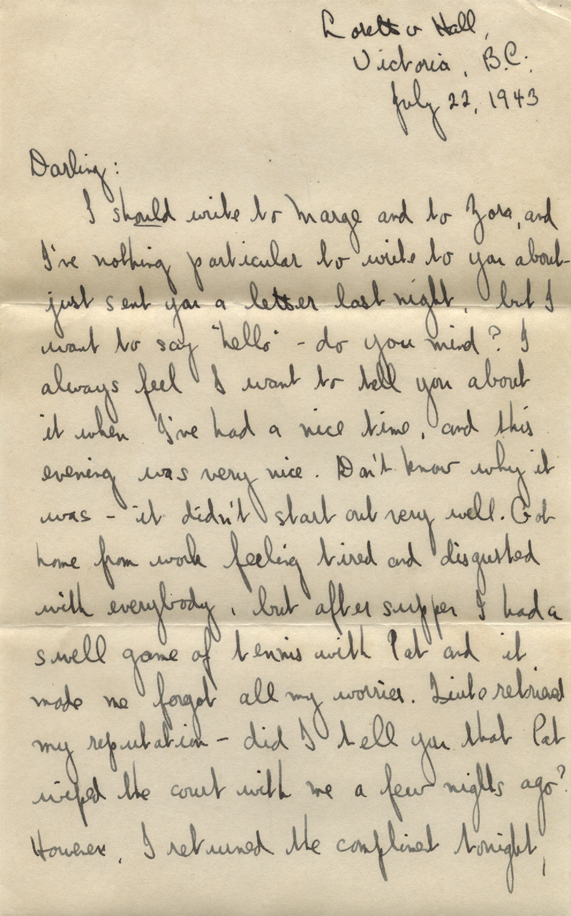 Loretto Hall,
Victoria, B.C.
July 22, 1943
Darling:
I should write to Marge and to Zora, and
I've nothing particular to write to you about -
just sent you a letter last night, but I
want to say "hello" - do you mind? I
always feel I want to tell you about
it when I've had a nice time, and this
evening was very nice. Don't know why it
was - it didn't start out very well. Got
home from work feeling tired and disgusted
with everybody, but after supper I had a
swell game of tennis with Pat and it
made me forget all my worries. Quite retrieved
my reputation - did I tell you that Pat
wiped the court with me a few nights ago?
However, I returned the compliment tonight,